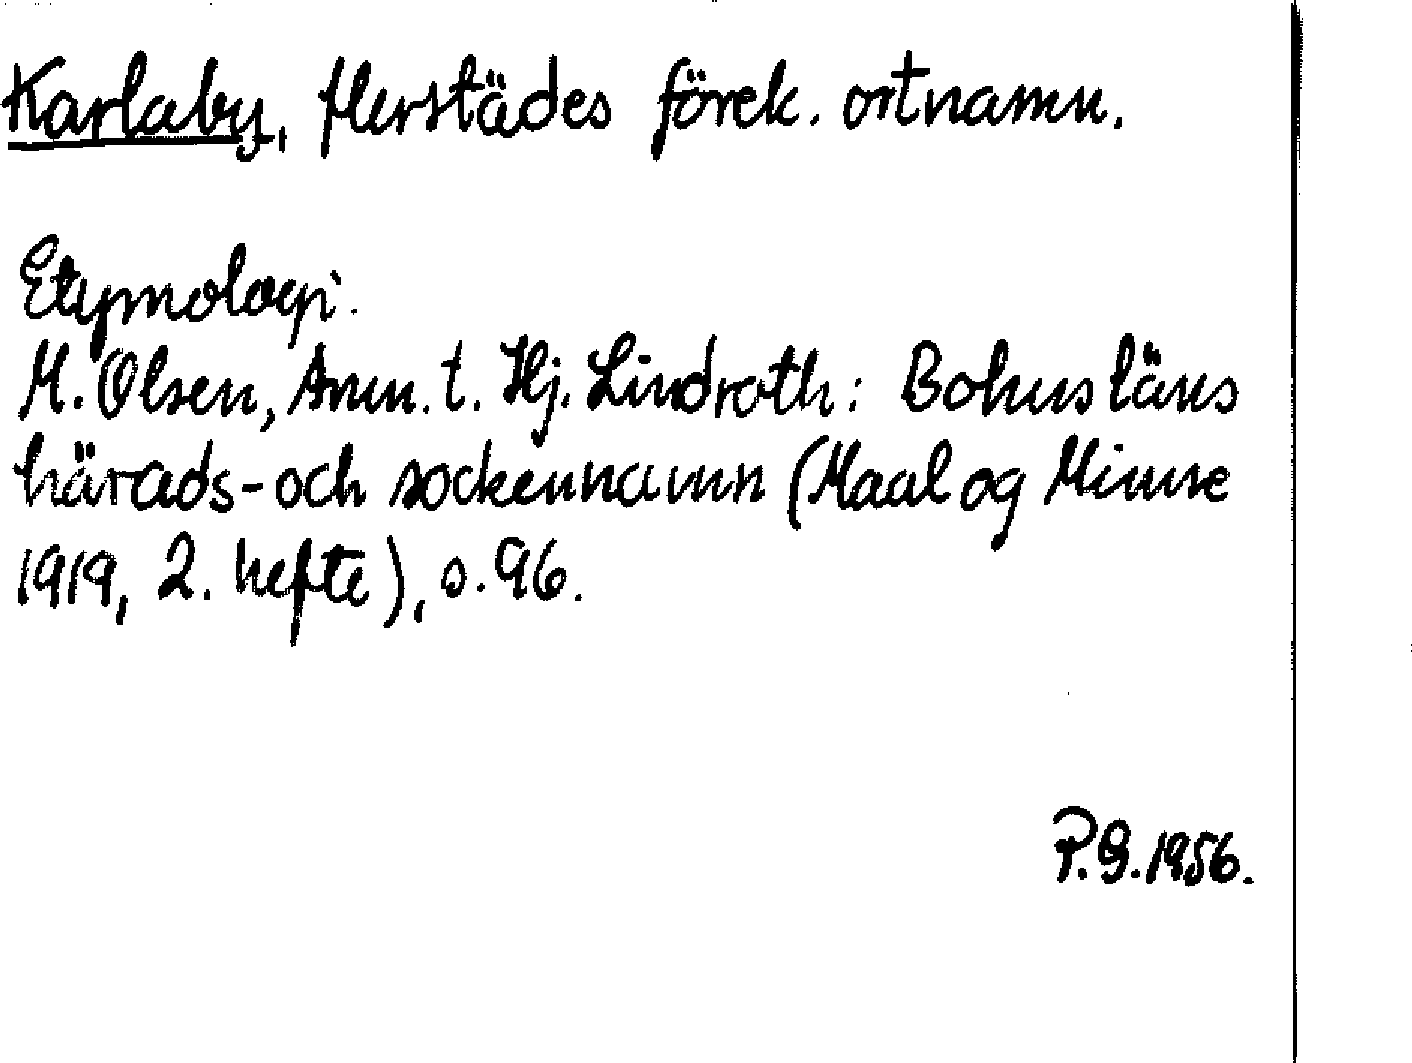 Karlaby, flerstädes förek. ortnamn.
Etymologi.
M. Olsen, Anm. t. Hj. Lindroth: Bohusläns
härads- och sockennamn (Maal og Minne
1919, 2. hefte), s. 96.
P.G. 1956.